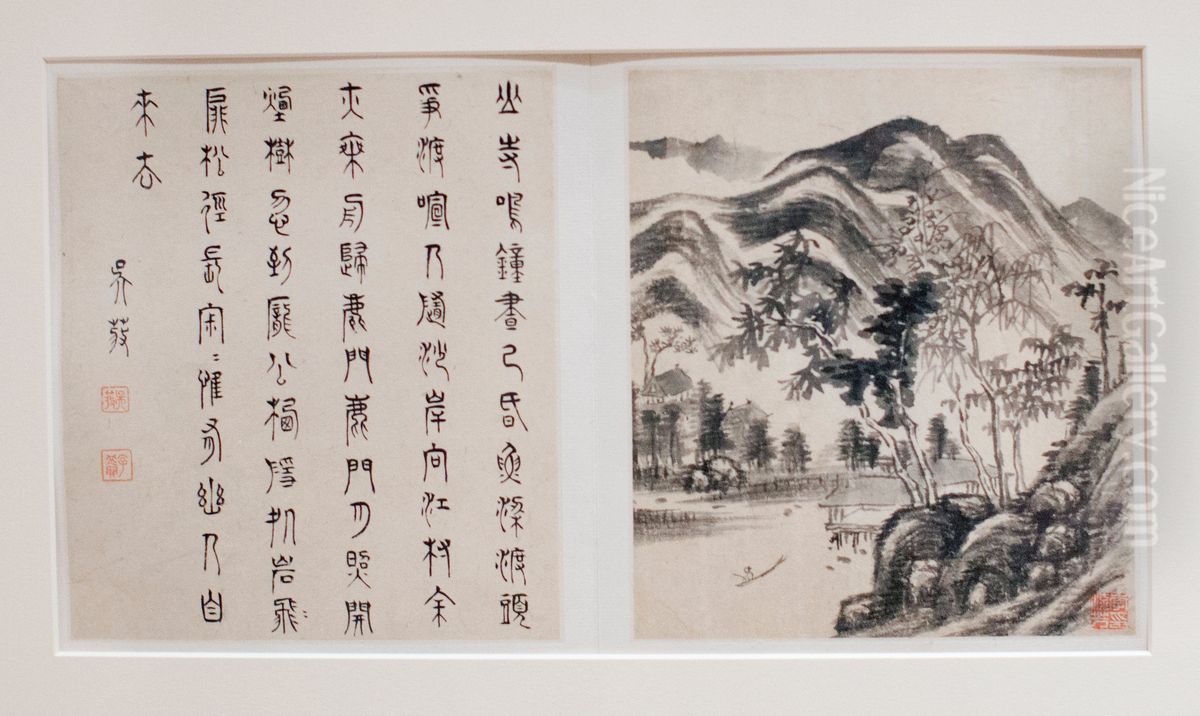 山寺鳴鐘晝已昏魚梁渡頭
爭渡喧人隨沙岸向江村余
亦乘舟歸鹿門鹿門月照開
煙樹忽到龐公棲隱処岩飛
扉松徑長寂〻惟有幽人自
來去
吳
NiceArtGallery.com